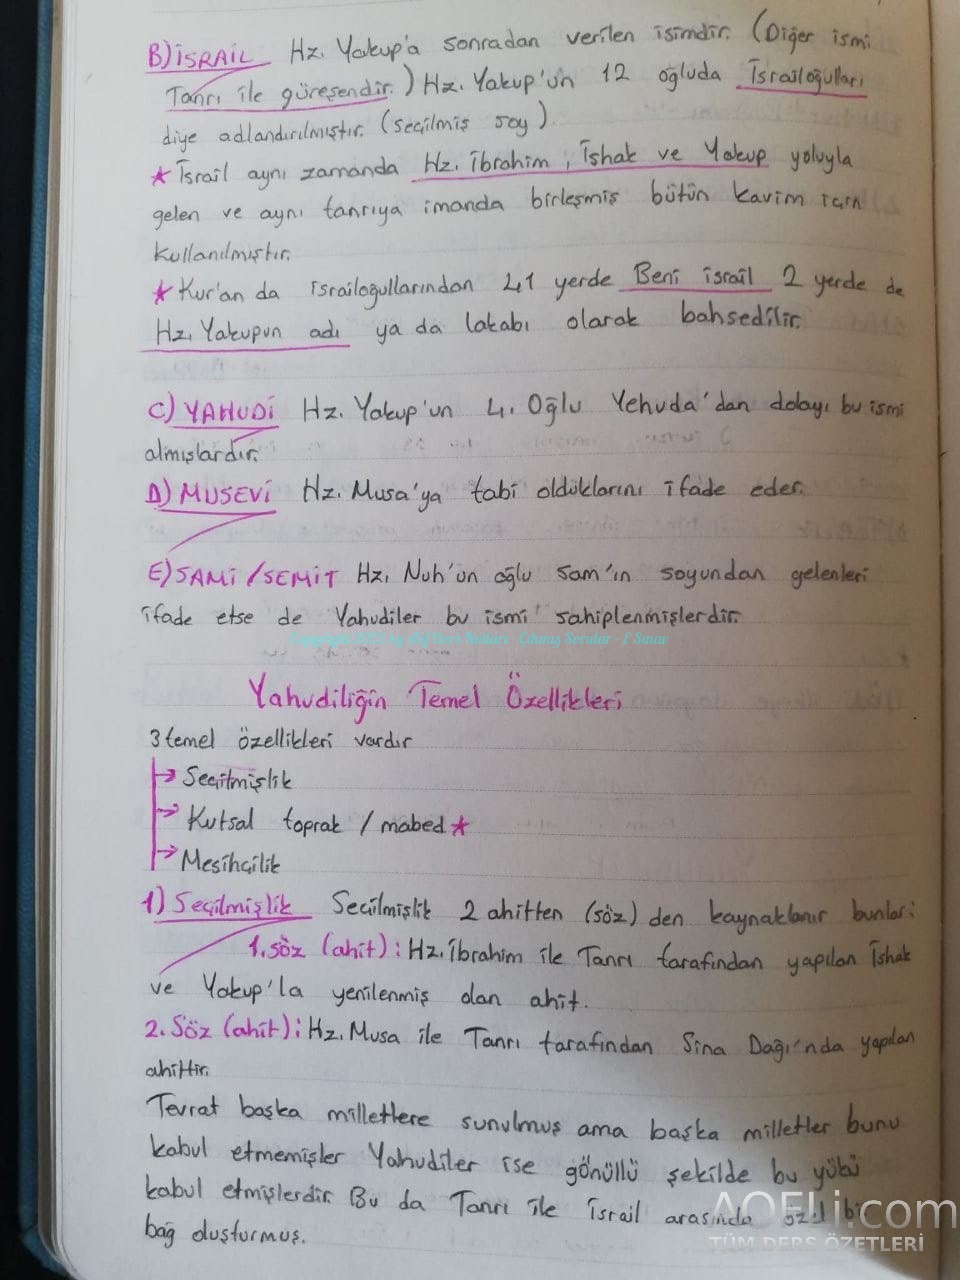 B) İSRAİL Hz. Yakup'a sonradan verilen isimdir. (Diğer ismi
Tanrı ile güreşendir.) Hz. Yakup'un 12 oğluda İsrailoğulları
diye adlandırılmıştır. (seçilmiş soy)
★ İsrail aynı zamanda Hz. İbrahim, İshak ve Yakup yoluyla
gelen ve aynı tanrıya imanda birleşmiş bütün kavim için
kullanılmıştır.
★ Kur'an da israiloğullarından 41 yerde Beni israil 2 yerde de
Hz. Yakupun adı ya da lakabı olarak bahsedilir.
C) YAHUDİ Hz. Yakup'un 4. Oğlu Yehuda'dan dolayı bu ismi
almışlardır.
D) MUSEVİ Hz. Musa'ya tabi olduklarını ifade eder.
E) SAMİ / SEMİT Hz. Nuh'un oğlu Sam'ın soyundan gelenleri
ifade etse de Yahudiler bu ismi sahiplenmişlerdir.
Yahudiliğin Temel Özellikleri
3 temel özellikleri vardır
→ Seçilmişlik
→ Kutsal toprak / mabed ★
→ Mesihçilik
1) Seçilmişlik Seçilmişlik 2 ahitten (söz) den kaynaklanır bunlar:
1. söz (ahit): Hz. İbrahim ile Tanrı tarafından yapılan İshak
ve Yakup'la yenilenmiş olan ahit.
2. Söz (ahit): Hz. Musa ile Tanrı tarafından Sina Dağı'nda yapılan
ahittir.
Tevrat başka milletlere sunulmuş ama başka milletler bunu
kabul etmemişler Yahudiler ise gönüllü şekilde bu yükü
kabul etmişlerdir. Bu da Tanrı ile İsrail arasında özel bir
bağ oluşturmuş.
AOFLi.com
TÜM DERS ÖZETLERİ